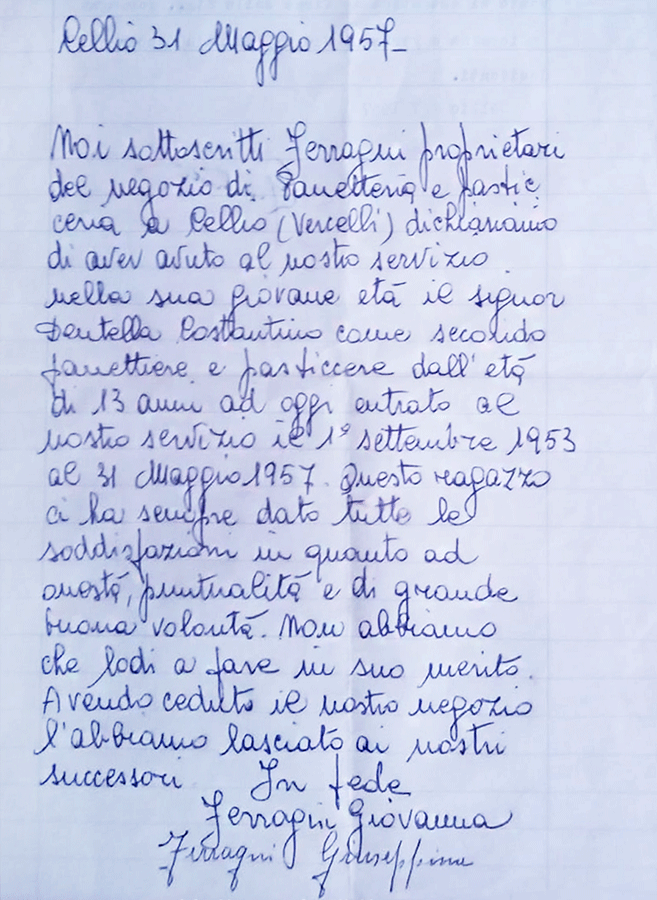 Cellio 31 Maggio 1957_
Noi sottoscritti Ferragni proprietari
del negozio di Panetteria e pastic
ceria a Cellio (Vercelli) dichiariamo
di aver avuto al nostro servizio
nella sua giovane età il signor
Dentella Costantino come secondo
panettiere e pasticcere dall'età
di 13 anni ad oggi entrato al
nostro servizio il 1° settembre 1953
al 31 Maggio 1957. Questo ragazzo
ci ha sempre dato tutte le
soddisfazioni in quanto ad
onestà, puntualità e di grande
buona volontà. Non abbiamo
che lodi a fare in suo merito.
Avendo ceduto il nostro negozio
l'abbiamo lasciato ai nostri
successori In fede
Ferragni Giovanna
Ferragni Giuseppina